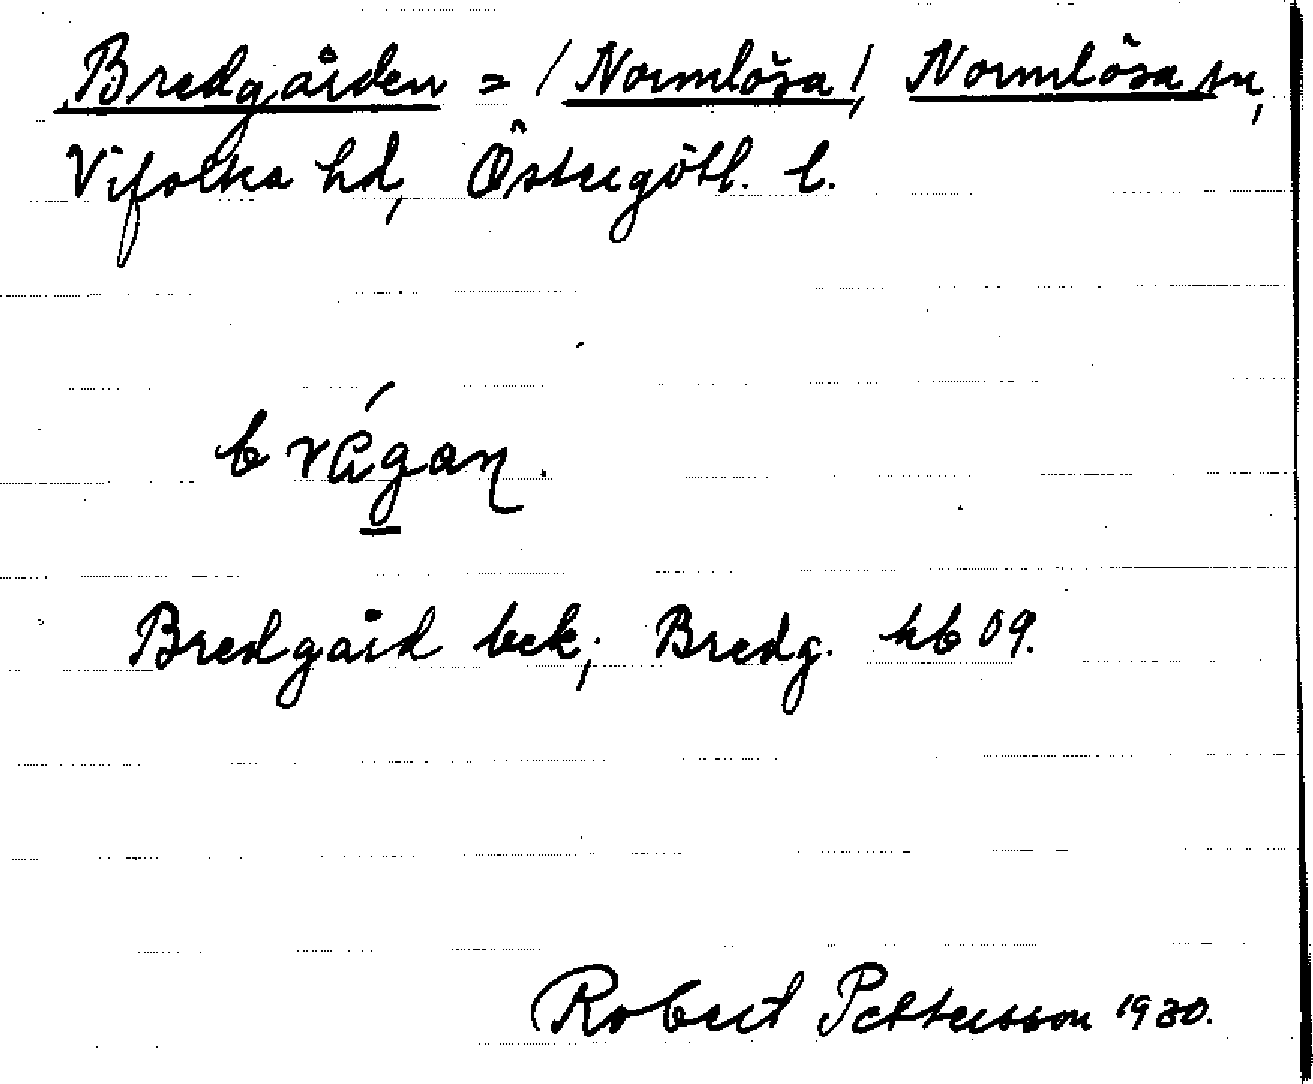 Bredgården = / Normlösa /, Normlösa sn,
Vifolka hd, Östergötl. l.
Bredgård bek; Bredg. kb 09.
Robert Pettersson 1930.